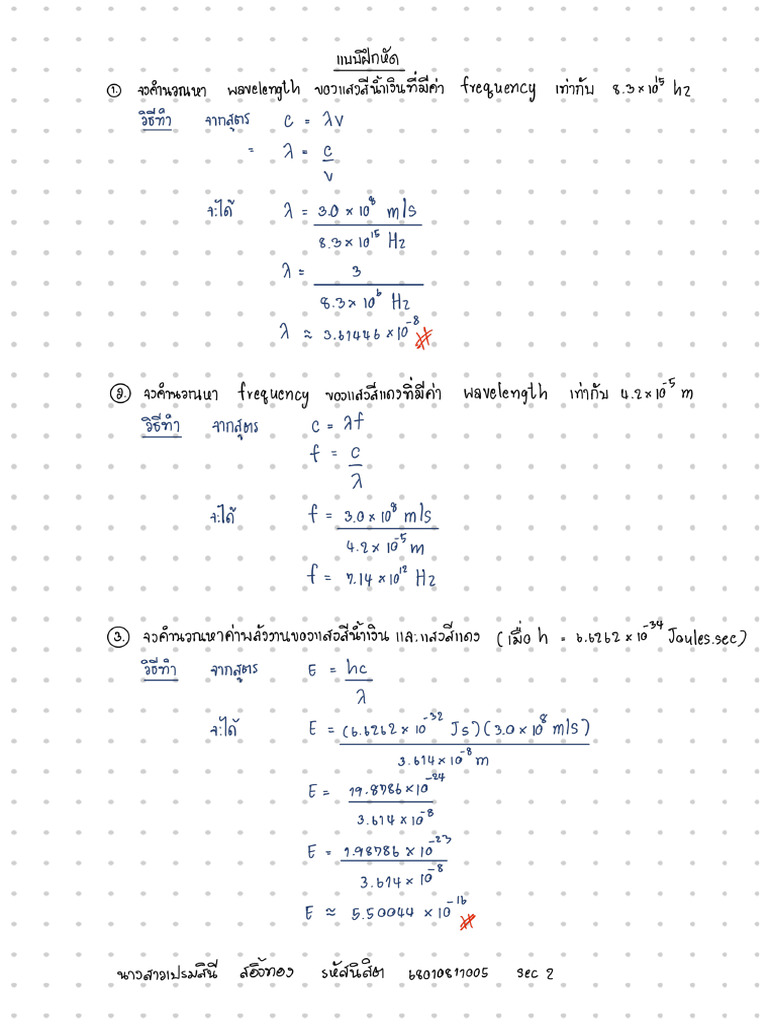 แบบฝึกหัด
1. จงคำนวณหา wavelength ของแสงสีน้ำเงินที่มีค่า frequency เท่ากับ 8.3 × 10¹⁵ hz
วิธีทำ จากสูตร c = λν
= λ = c
ν
จะได้ λ = 3.0 × 10⁸ m/s
8.3 × 10¹⁵ Hz
λ = 3
8.3 × 10⁶ Hz
λ ≈ 3.61446 × 10⁻⁸ #
2. จงคำนวณหา frequency ของแสงสีแดงที่มีค่า wavelength เท่ากับ 4.2 × 10⁻⁵ m
วิธีทำ จากสูตร c = λf
f = c
λ
จะได้ f = 3.0 × 10⁸ m/s
4.2 × 10⁻⁵ m
f = 7.14 × 10¹² Hz
3. จงคำนวณหาค่าพลังงานของแสงสีน้ำเงิน และแสงสีแดง (เมื่อ h = 6.6262 × 10⁻³⁴ Joules.sec)
วิธีทำ จากสูตร E = hc
λ
จะได้ E = (6.6262 × 10⁻³² Js)(3.0 × 10⁸ m/s)
3.614 × 10⁻⁸ m
E = 19.8786 × 10⁻²⁴
3.614 × 10⁻⁸
E = 1.98786 × 10⁻²³
3.614 × 10⁻⁸
E ≈ 5.50044 × 10⁻¹⁶ #
นางสาวเปรมสินี สอิ้งทอง รหัสนิสิต 68010811005 sec 2